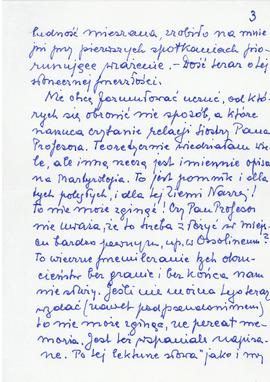 3
ludność mieszana, zrobiło na mnie
już przy pierwszych spotkaniach pio-
runujące wrażenie. – Dość teraz o tej
słonecznej przeszłości.
Nie chcę formułować uczuć, od któ-
rych się obronić nie sposób, a które
narzuca czytanie relacji Siostry Pana
Profesora. Teoretycznie wiedziałam wie-
le, ale inną rzeczą jest imiennie opisa-
na Martyrologia. To jest pomnik i dla
tych poległych, i dla tej Ziemi Naszej!
To nie może zginąć! Czy Pan Profesor
nie uważa, że to trzeba złożyć w miejs-
cu bardzo pewnym, np. w Ossolineum?
To wieczne przemilczanie tych okru-
cieństw bez granic i bez końca nam
nie służy. Jeśli nie można tego teraz
wydać (nawet pod pseudonimem)
to nie może zginąć, ne pereat me-
moria. Jest też wspaniale napisa-
ne. Po tej lekturze słowa "jako i my